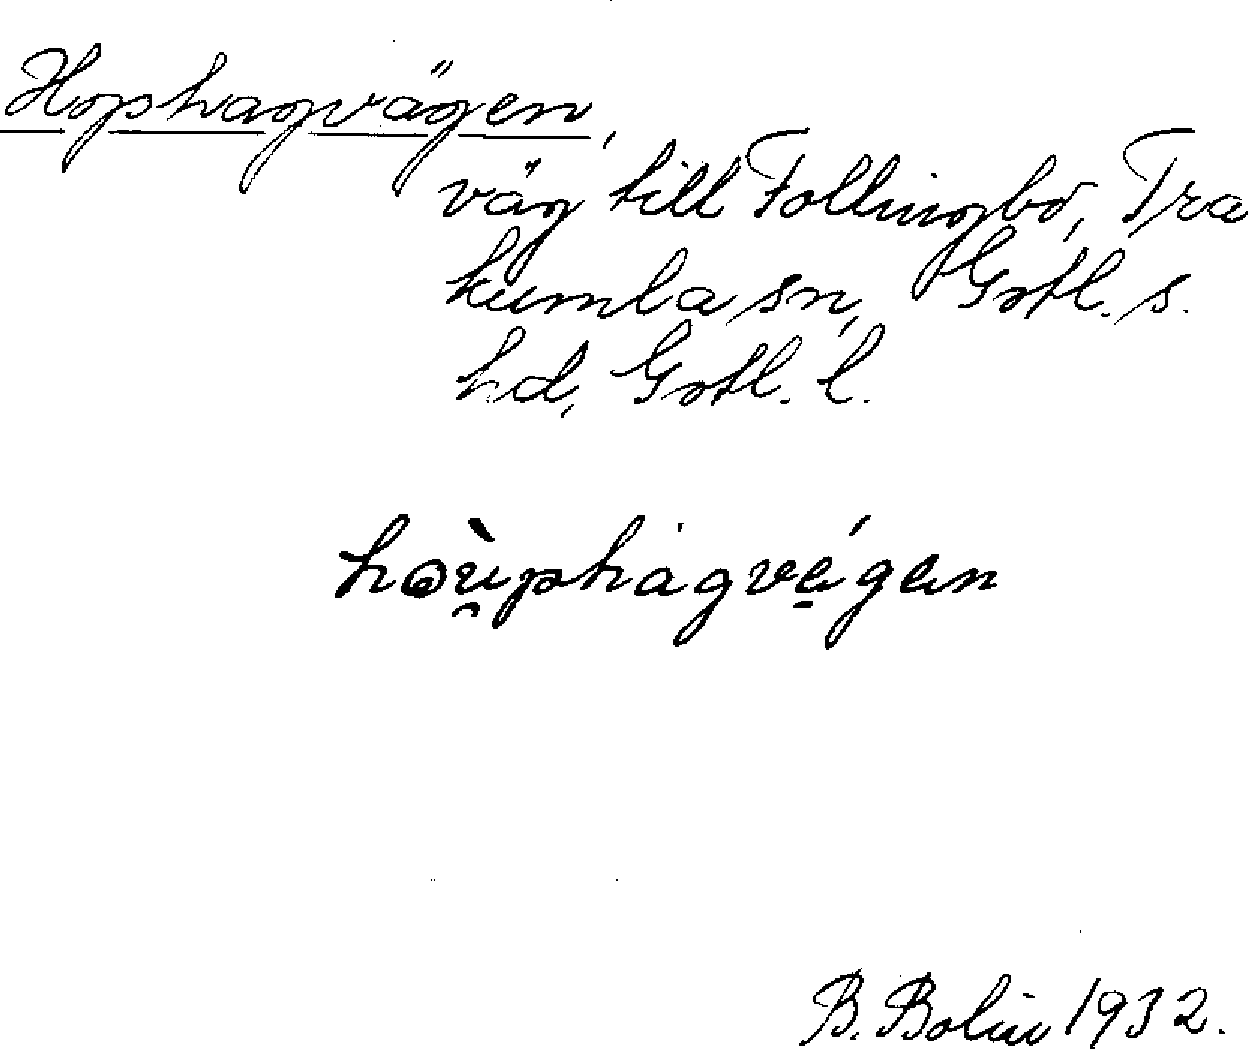 Hophagvägen,
väg till Follingbo, Tra
kumla sn, Gotl. s.
hd, Gotl. l.
hoùphagvę́gen
B. Bolin 1932.